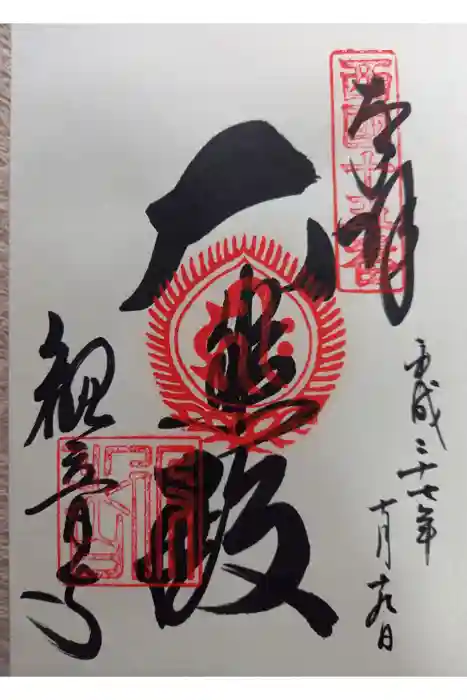 西国十五番
奉拝
平成二十七年
十月十九日
大悲殿
観音寺